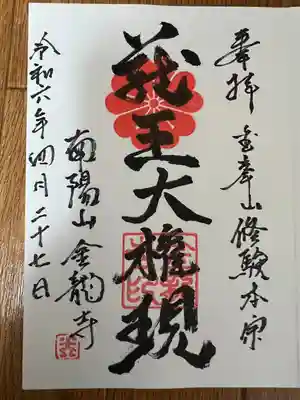 奉拝 金峯山修験本宗
蔵王大権現
南陽山金龍寺
令和六年四月二十七日